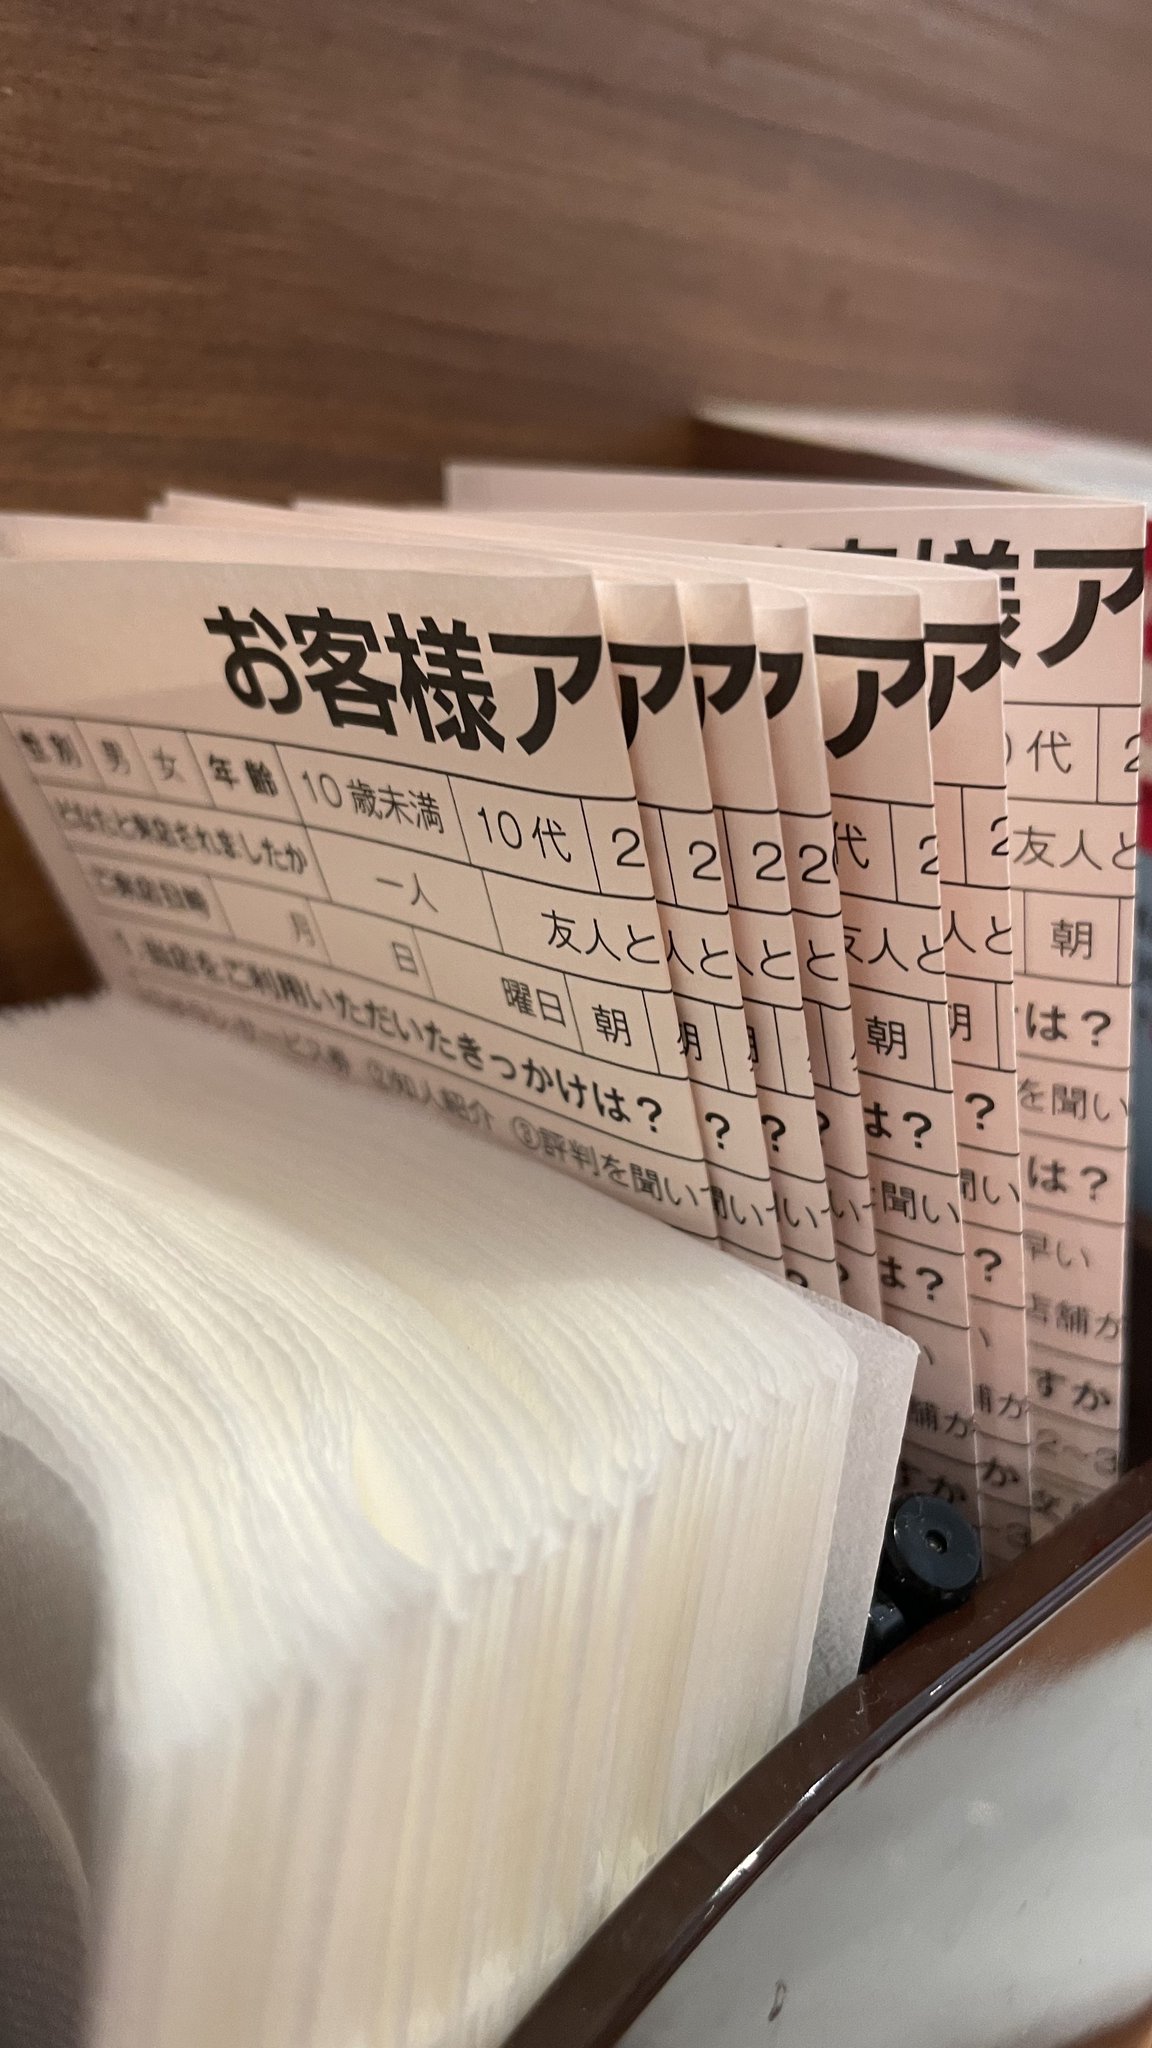 お客様ア
性別 男 女 年齢 10歳未満 10代 2
どなたと来店されましたか 一人 友人と
ご来店日時 月 日 曜日 朝
1.当店をご利用いただいたきっかけは?
ービス券 ②知人紹介 ③評判を聞い
ア
2
人と
?
ア
2
と
?
ア
2
と
ア
代 2
友人と
朝
は?
聞い
は?
舗が
すか
ア
2
人と
?
い
?
か
様ア
代 2
友人と
朝
は?
を聞い
は?
早い
店舗が
すか
2~3